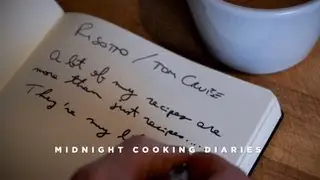 RISOTTO / TOM CRUISE
A lot of my recipes are
more than just recipes...
They're my l
MIDNIGHT COOKING DIARIES